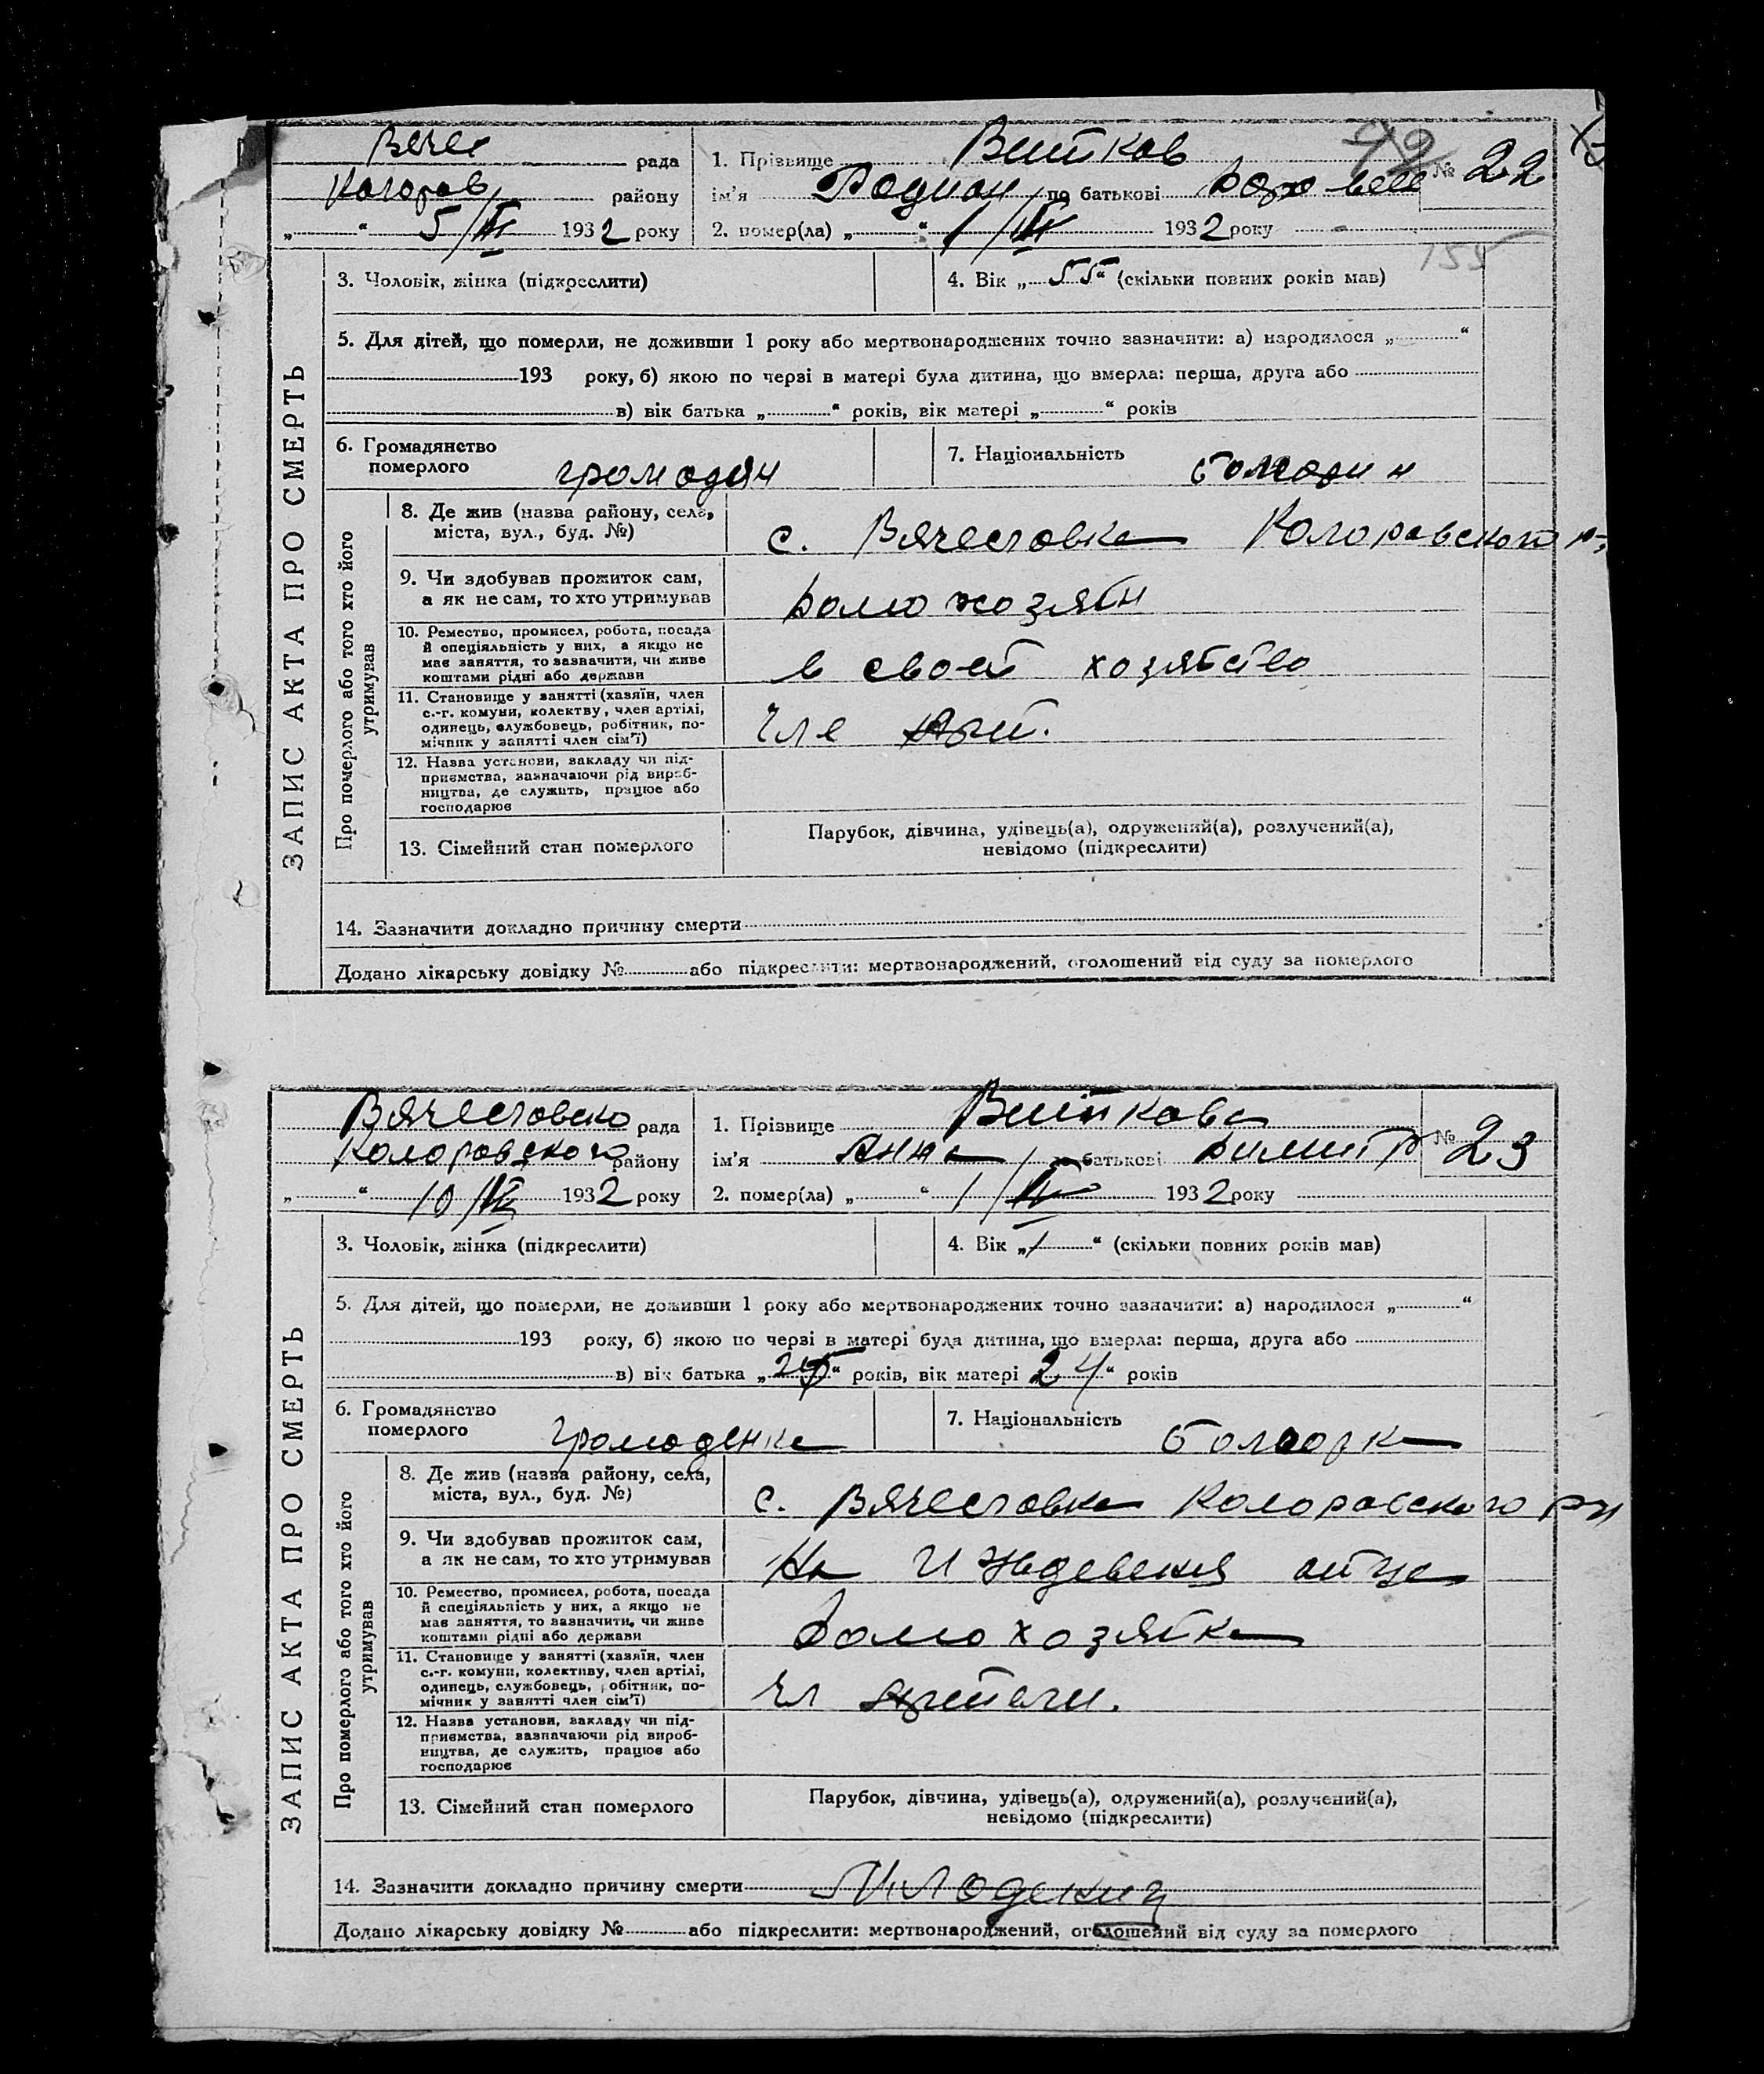 Вячес рада
Коларов району
„ “ 5/III 1932 року
1. Прізвище Вититков
ім’я Родион по батькові
№ 22
2. помер(ла) „ “ 1/III 1932 року
155
ЗАПИС АКТА ПРО СМЕРТЬ
3. Чоловік, жінка (підкреслити)
4. Вік „55“ (скільки повних років мав)
5. Для дітей, що померли, не доживши 1 року або мертвонароджених точно зазначити: а) народилося „ “
193 року, б) якою по черзі в матері була дитина, що вмерла: перша, друга або
в) вік батька „ “ років, вік матері „ “ років
6. Громадянство
померлого громодян
7. Національність болгарин
Про померлого або того хто його
утримував
8. Де жив (назва району, села,
міста, вул., буд. №)
с. Вячеславка Коларавского р-
9. Чи здобував прожиток сам,
а як не сам, то хто утримував
домохозяин
10. Ремество, промисел, робота, посада
й спеціяльність у них, а якщо не
має заняття, то зазначити, чи живе
коштами рідні або держави
в своей хозяйство
11. Становище у занятті (хазяїн, член
с.-г. комуни, колективу, член артілі,
одинець, службовець, робітник, по-
мічник у занятті член сім’ї)
Чле
12. Назва установи, закладу чи під-
приємства, зазначаючи рід вироб-
ництва, де служить, працює або
господарює
13. Сімейний стан померлого
Парубок, дівчина, удівець(а), одружений(а), розлучений(а),
невідомо (підкреслити)
14. Зазначити докладно причину смерти
Додано лікарську довідку № або підкреслити: мертвонароджений, оголошений від суду за померлого
Вячеславско рада
Коларовского району
„ “ 10/III 1932 року
1. Прізвище Витткова
ім’я Анна по батькові Димитр
№ 23
2. помер(ла) „ “ 1/III 1932 року
ЗАПИС АКТА ПРО СМЕРТЬ
3. Чоловік, жінка (підкреслити)
4. Вік „1“ (скільки повних років мав)
5. Для дітей, що померли, не доживши 1 року або мертвонароджених точно зазначити: а) народилося „ “
193 року, б) якою по черзі в матері була дитина, що вмерла: перша, друга або
в) вік батька „25“ років, вік матері „24“ років
6. Громадянство
померлого громоденка
7. Національність болгарка
Про померлого або того хто його
утримував
8. Де жив (назва району, села,
міста, вул., буд. №)
с. Вячеславка Коларовского р-н
9. Чи здобував прожиток сам,
а як не сам, то хто утримував
На Иждевения отца
10. Ремество, промисел, робота, посада
й спеціяльність у них, а якщо не
має заняття, то зазначити, чи живе
коштами рідні або держави
домохозяйка
11. Становище у занятті (хазяїн, член
с.-г. комуни, колективу, член артілі,
одинець, службовець, робітник, по-
мічник у занятті член сім’ї)
Чл артели.
12. Назва установи, закладу чи під-
приємства, зазначаючи рід вироб-
ництва, де служить, працює або
господарює
13. Сімейний стан померлого
Парубок, дівчина, удівець(а), одружений(а), розлучений(а),
невідомо (підкреслити)
14. Зазначити докладно причину смерти Младенич
Додано лікарську довідку № або підкреслити: мертвонароджений, оголошений від суду за померлого